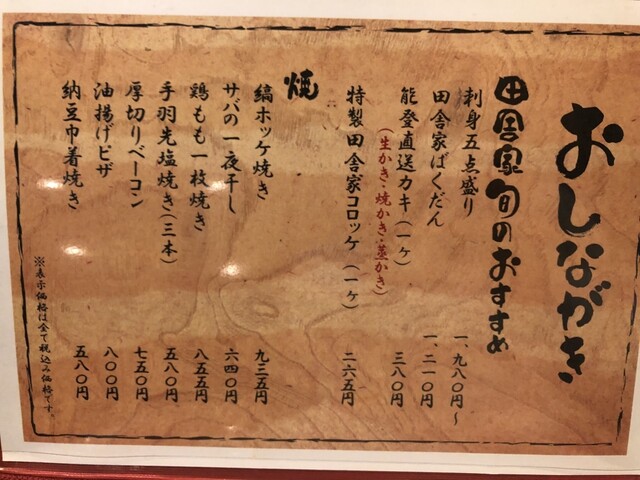 おしながき
田舎家旬のおすすめ
刺身五点盛り 一、九八〇円～
田舎家ばくだん 一、二一〇円
能登直送カキ（一ヶ） 三八〇円
（生かき・焼かき・蒸かき）
特製田舎家コロッケ（一ヶ） 二六五円
焼
縞ホッケ焼き 九三五円
サバの一夜干し 六四〇円
鶏もも一枚焼き 八五五円
手羽先塩焼き（三本） 五八〇円
厚切りベーコン 七五〇円
油揚げピザ 八〇〇円
納豆巾着焼き 五八〇円
※表示価格は全て税込み価格です。